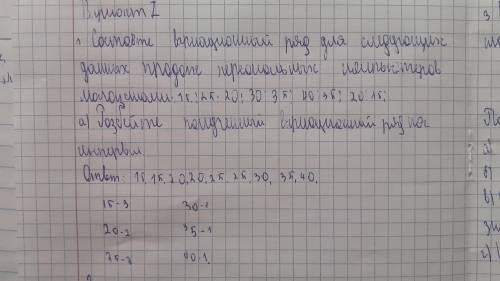 Вариант I
1. Составте вариационный ряд для следующих
данных продаж персональных компьютеров
магазинами: 15; 25. 20; 30 35; 40; 35; 20 15;
а) Разбейте полученный вариационный ряд на
интервал
Ответ: 15, 15, 20, 20, 25, 25, 30, 35, 40.
15-3 30-1
20-2 35-1
25-2 40-1.